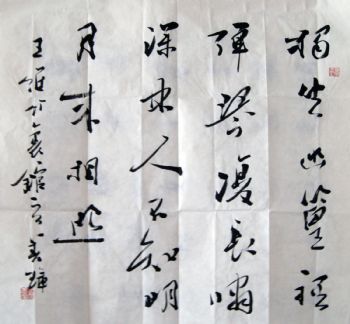 獨坐幽篁裡
彈琴復長嘯
深林人不知明
月來相照
王維竹裏館